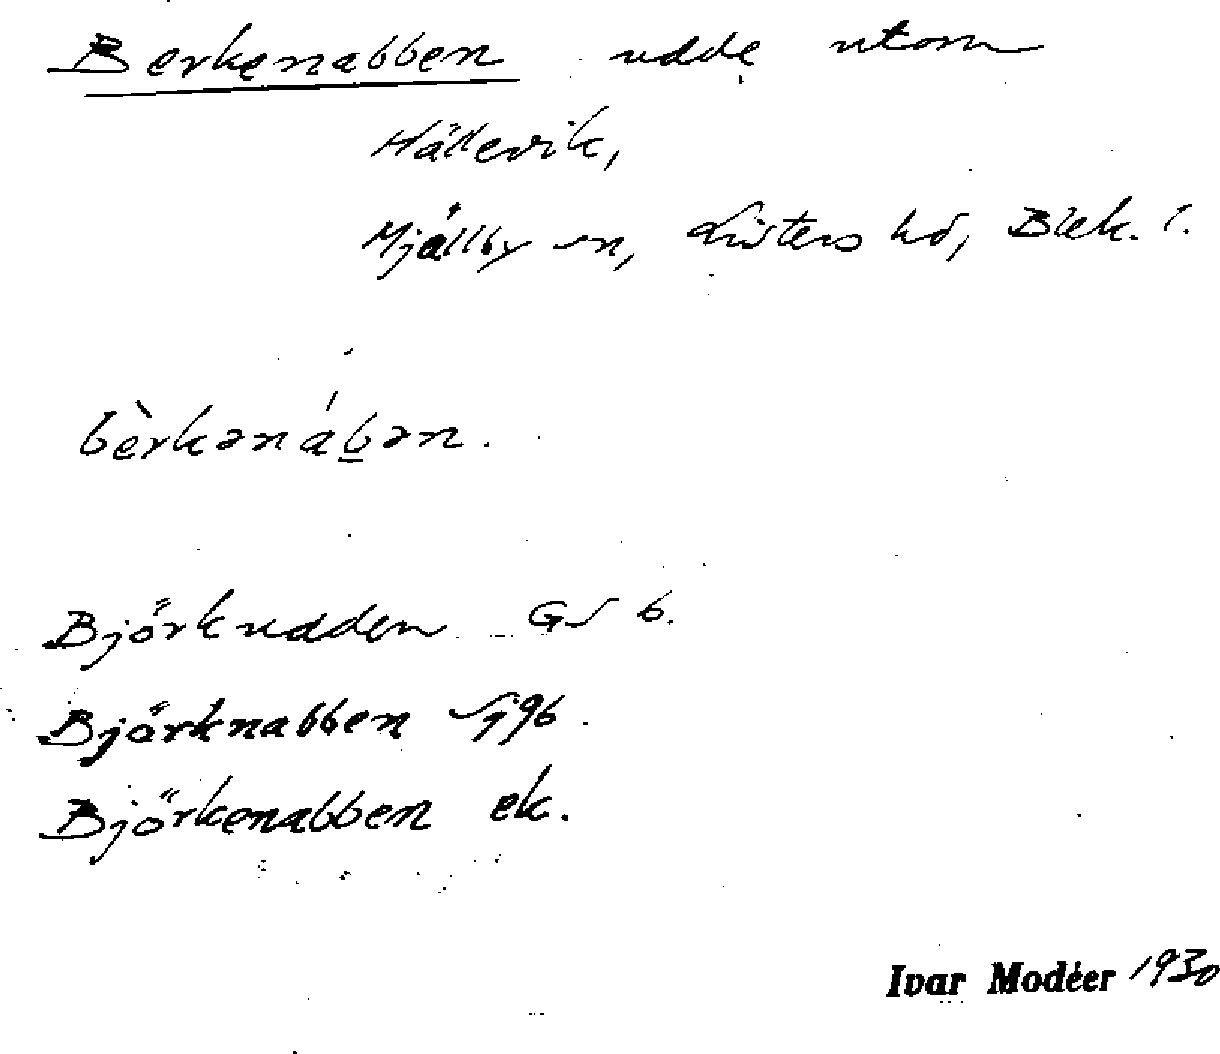 Berkenabben udde utom
Hällevik,
Mjällby sn, Listers hd, Blek. l.
bèrkənábən.
Björkudden GS 6.
Björknabben
Björkenabben ek.
Ivar Modéer 1930